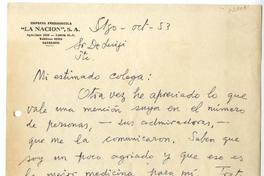 EMPRESA PERIODISTICA
"LA NACION", S. A.
SANTIAGO
Stgo - oct - 53
Sr. De Luigi
Pte.
Mi estimado colega:
Otra vez he apreciado lo que
vale una mención suya en el número
de personas, — sus admiradoras, —
que me la comunicaron. Saben que
soy un poco agriado y que eso es
la mejor medicina para mí.